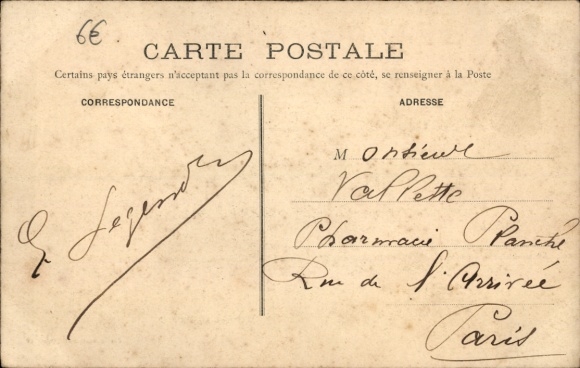 6€
CARTE POSTALE
Certains pays étrangers n'acceptant pas la correspondance de ce côté, se renseigner à la Poste
CORRESPONDANCE
ADRESSE
Monsieur
Vallette
Pharmacie Planche
Rue de l'Arrivée
Paris